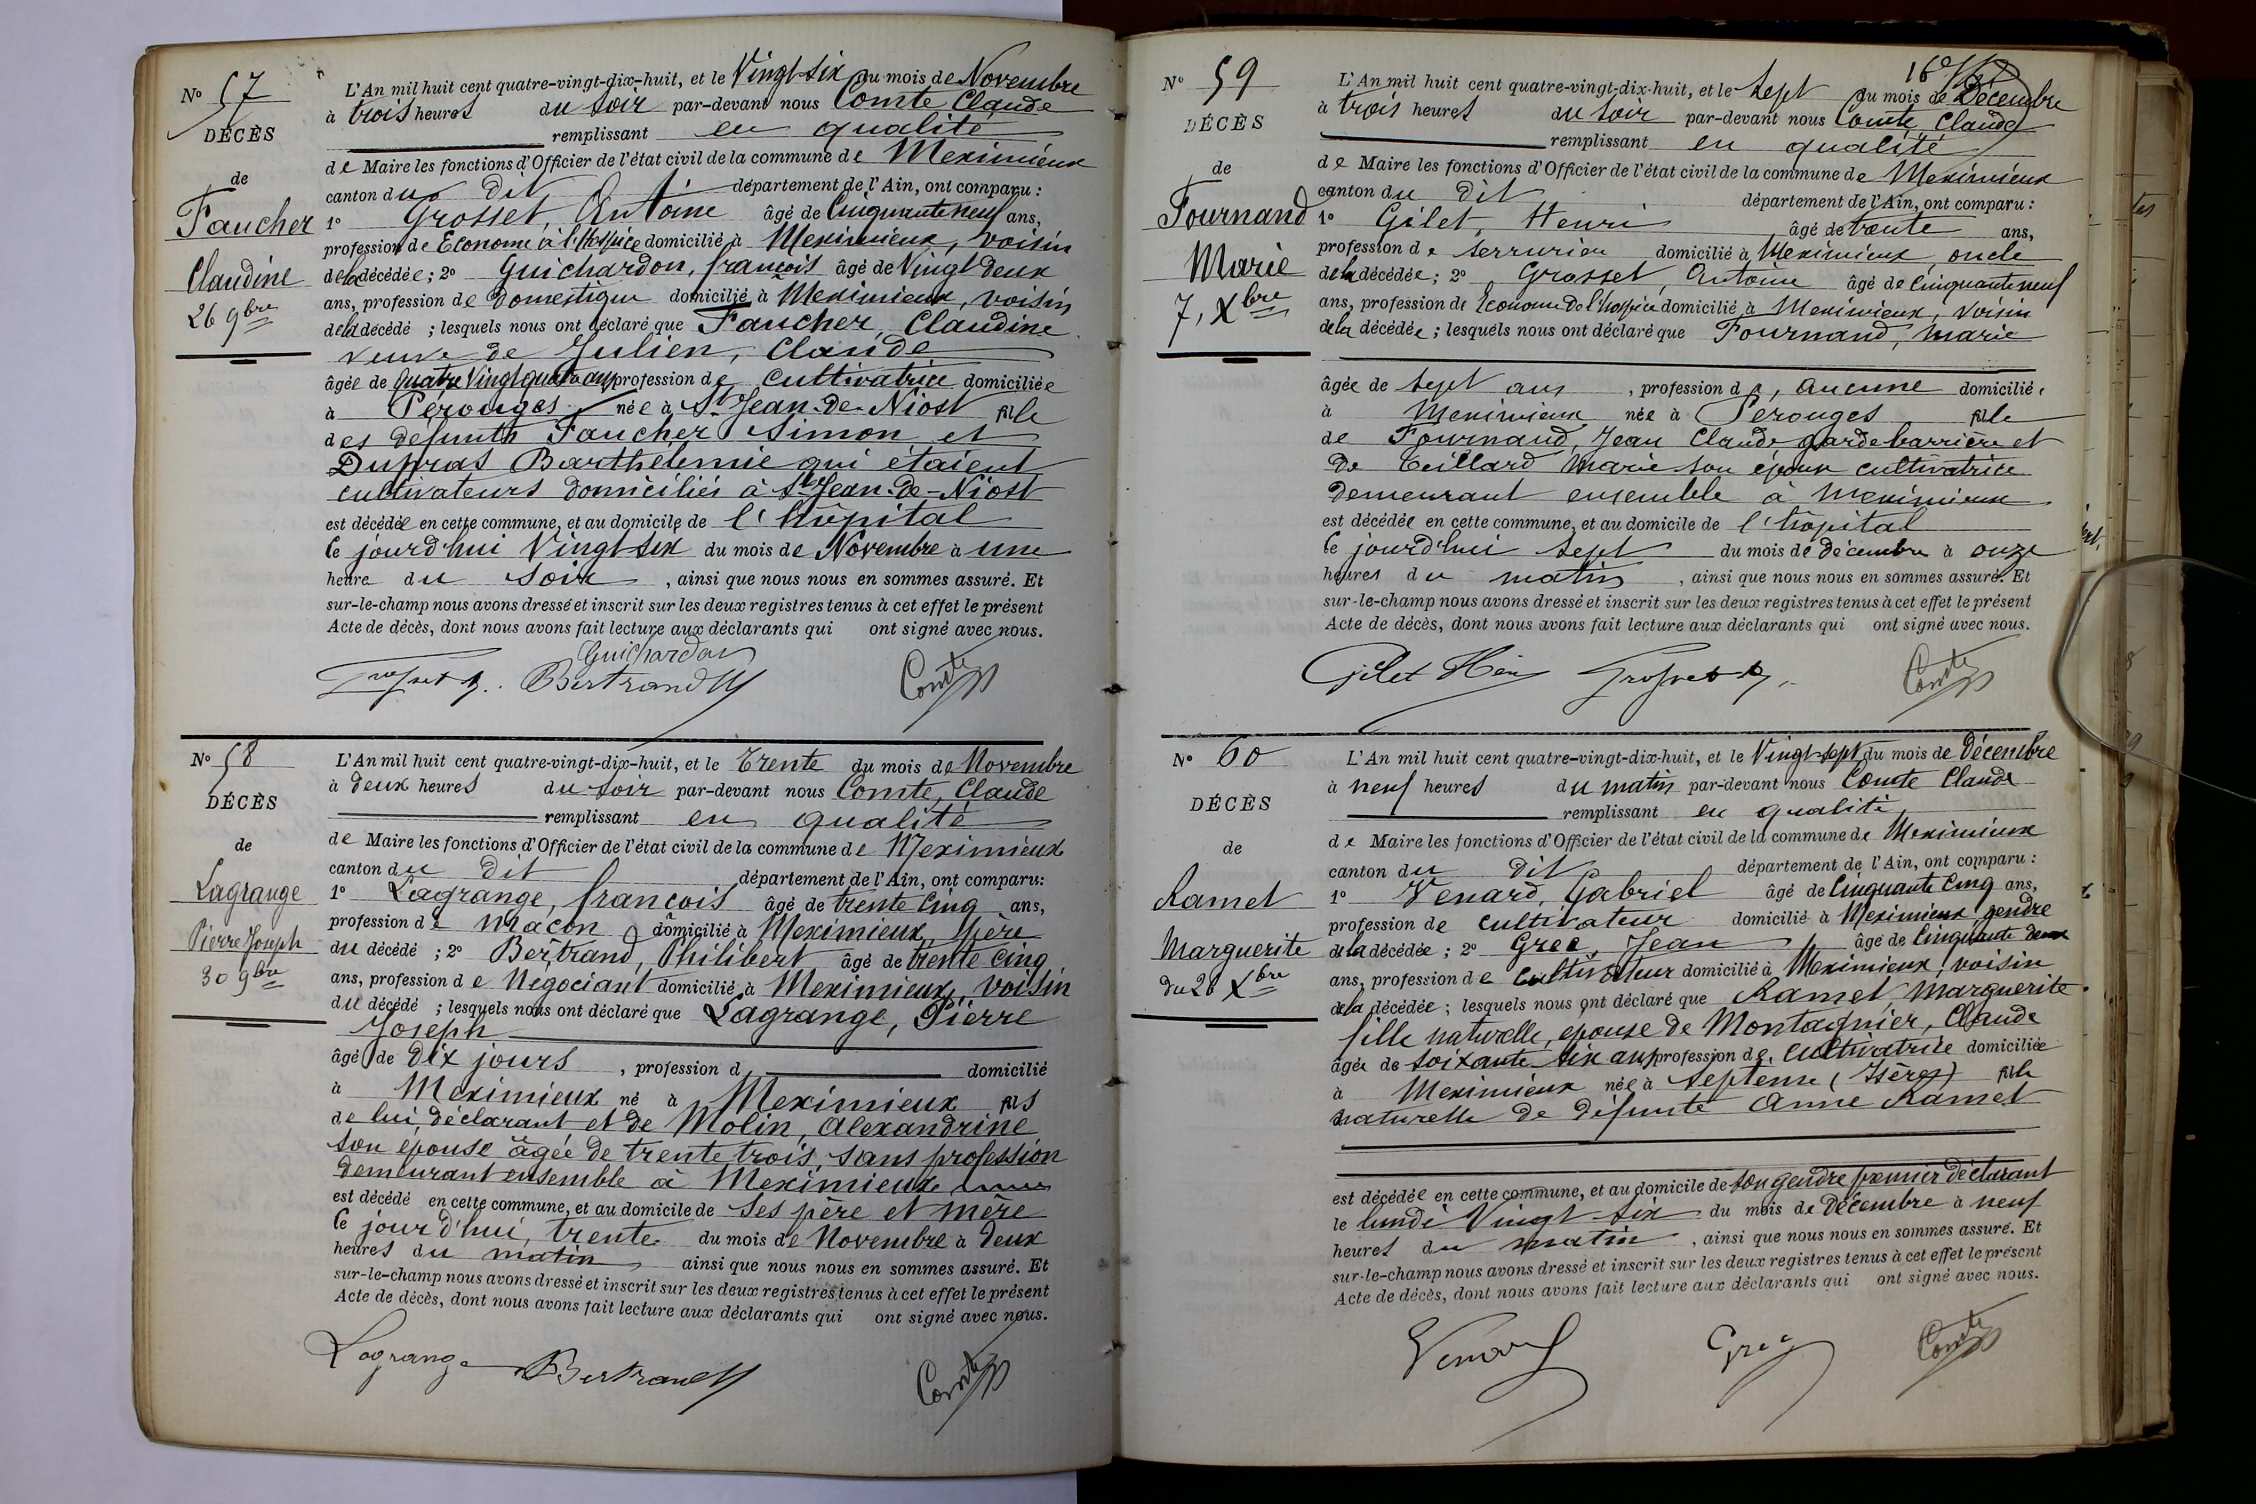 N° 57
DÉCÈS
de
Faucher
Claudine
26 9bre
L'An mil huit cent quatre-vingt-dix-huit, et le Vingt-six du mois de Novembre
à trois heures du soir par-devant nous Comte Claude
remplissant en qualité
de Maire les fonctions d'Officier de l'état civil de la commune de Meximieux
canton du dit département de l'Ain, ont comparu :
1° Grosset, Antoine âgé de Cinquante neuf ans,
profession de Econome à l'Hospice domicilié à Meximieux, voisin
de la décédée ; 2° Guichardon, françois âgé de Vingt deux
ans, profession de Domestique domicilié à Meximieux, voisin
de la décédé ; lesquels nous ont déclaré que Faucher, Claudine
veuve de Julien, Claude
âgée de quatre Vingt quatre ans profession de cultivatrice domiciliée
à Pérouges née à St Jean-de-Niost fille
des défunts Faucher Simon et
Dupras Barthélemie qui étaient
cultivateurs domiciliés à St Jean-de-Niost
est décédée en cette commune, et au domicile de l'hôpital
le jourd'hui Vingt-six du mois de Novembre à une
heure du soir , ainsi que nous nous en sommes assuré. Et
sur-le-champ nous avons dressé et inscrit sur les deux registres tenus à cet effet le présent
Acte de décès, dont nous avons fait lecture aux déclarants qui ont signé avec nous.
Guichardon
Grosset Bertrand Comte
N° 58
DÉCÈS
de
Lagrange
Pierre Joseph
30 9bre
L'An mil huit cent quatre-vingt-dix-huit, et le Trente du mois de Novembre
à deux heures du soir par-devant nous Comte, Claude
remplissant en qualité
de Maire les fonctions d'Officier de l'état civil de la commune de Meximieux
canton du dit département de l'Ain, ont comparu:
1° Lagrange, françois âgé de trente cinq ans,
profession de maçon domicilié à Meximieux, père
du décédé ; 2° Bertrand, Philibert âgé de trente cinq
ans, profession de Négociant domicilié à Meximieux, voisin
du décédé ; lesquels nous ont déclaré que Lagrange, Pierre
Joseph
âgé de dix jours , profession d domicilié
à Meximieux né à Meximieux fils
de lui, déclarant et de Molin, Alexandrine
son épouse âgée de trente trois, sans profession
demeurant ensemble à Meximieux
est décédé en cette commune, et au domicile de ses père et mère
le jour d'hui, trente du mois de Novembre à deux
heures du matin ainsi que nous nous en sommes assuré. Et
sur-le-champ nous avons dressé et inscrit sur les deux registres tenus à cet effet le présent
Acte de décès, dont nous avons fait lecture aux déclarants qui ont signé avec nous.
Lagrange Bertrand Comte
16e
N° 59
DÉCÈS
de
Fournand
Marie
7, Xbre
L'An mil huit cent quatre-vingt-dix-huit, et le sept du mois de Décembre
à trois heures du soir par-devant nous Comte, Claude
remplissant en qualité
de Maire les fonctions d'Officier de l'état civil de la commune de Meximieux
canton du dit département de l'Ain, ont comparu :
1° Gilet, Henri âgé de trente ans,
profession de serrurier domicilié à Meximieux, oncle
de la décédée ; 2° Grosset, Antoine âgé de Cinquante neuf
ans, profession de Econome de l'hospice domicilié à Meximieux, voisin
de la décédée ; lesquels nous ont déclaré que Fournand, marie
âgée de sept ans , profession de, aucune domiciliée
à Meximieux née à Pérouges fille
de Fournand, Jean Claude garde barrière et
de Teillard Marie son épouse cultivatrice
demeurant ensemble à Meximieux
est décédée en cette commune, et au domicile de l'hôpital
le jourd'hui sept du mois de décembre à onze
heures du matin , ainsi que nous nous en sommes assuré. Et
sur-le-champ nous avons dressé et inscrit sur les deux registres tenus à cet effet le présent
Acte de décès, dont nous avons fait lecture aux déclarants qui ont signé avec nous.
Gilet Henri Grosset Comte
N° 60
DÉCÈS
de
Ramet
Marguerite
du 26 Xbre
L'An mil huit cent quatre-vingt-dix-huit, et le Vingt-sept du mois de Décembre
à neuf heures du matin par-devant nous Comte Claude
remplissant en qualité
de Maire les fonctions d'Officier de l'état civil de la commune de Meximieux
canton du dit département de l'Ain, ont comparu :
1° Venard, Gabriel âgé de Cinquante Cinq ans,
profession de cultivateur domicilié à Meximieux gendre
de la décédée ; 2° Gree, Jean âgé de Cinquante deux
ans, profession de cultivateur domicilié à Meximieux, voisin
de la décédée ; lesquels nous ont déclaré que Ramet, Marguerite
fille naturelle, épouse de Montagnier, Claude
âgée de soixante six ans profession de cultivatrice domiciliée
à Meximieux née à Septème (Isère) fille
naturelle de défunte Anne Ramet
est décédée en cette commune, et au domicile de son gendre premier déclarant
le lundi Vingt-six du mois de Décembre à neuf
heures du matin , ainsi que nous nous en sommes assuré. Et
sur-le-champ nous avons dressé et inscrit sur les deux registres tenus à cet effet le présent
Acte de décès, dont nous avons fait lecture aux déclarants qui ont signé avec nous.
Venard Comte